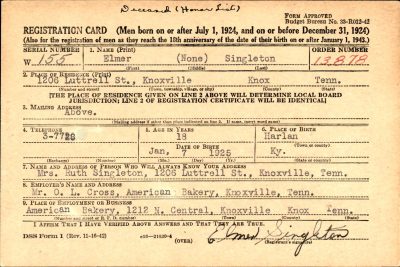 Deceased (Honor List)
FORM APPROVED
Budget Bureau No. 33-R012-42
REGISTRATION CARD (Men born on or after July 1, 1924, and on or before December 31, 1924)
(Also for registration of men as they reach the 18th anniversary of the date of their birth on or after January 1, 1943.)
SERIAL NUMBER
1. NAME (Print)
ORDER NUMBER
W 155
Elmer (None) Singleton
13878
(First) (Middle) (Last)
2. PLACE OF RESIDENCE (Print)
1206 Luttrell St., Knoxville Knox Tenn.
(Number and street) (Town, township, village, or city) (County) (State)
[THE PLACE OF RESIDENCE GIVEN ON LINE 2 ABOVE WILL DETERMINE LOCAL BOARD
JURISDICTION; LINE 2 OF REGISTRATION CERTIFICATE WILL BE IDENTICAL]
3. MAILING ADDRESS
Above.
[Mailing address if other than place indicated on line 2. If same, insert word same]
4. TELEPHONE
5. AGE IN YEARS
6. PLACE OF BIRTH
3-7728
18
Harlan
DATE OF BIRTH
(Town or county)
Jan. 1925
Ky.
(Exchange) (Number)
(Mo.) (Day) (Yr.)
(State or country)
7. NAME AND ADDRESS OF PERSON WHO WILL ALWAYS KNOW YOUR ADDRESS
Mrs. Ruth Singleton, 1206 Luttrell St., Knoxville, Tenn.
8. EMPLOYER'S NAME AND ADDRESS
Mr. O. L. Cross, American Bakery, Knoxville, Tenn.
9. PLACE OF EMPLOYMENT OR BUSINESS
American Bakery, 1212 N. Central, Knoxville Knox Tenn.
(Number and street or R. F. D. number) (Town) (County) (State)
I AFFIRM THAT I HAVE VERIFIED ABOVE ANSWERS AND THAT THEY ARE TRUE.
DSS Form 1 (Rev. 11-16-42)
(OVER)
Elmer Singleton
(Registrant's signature)